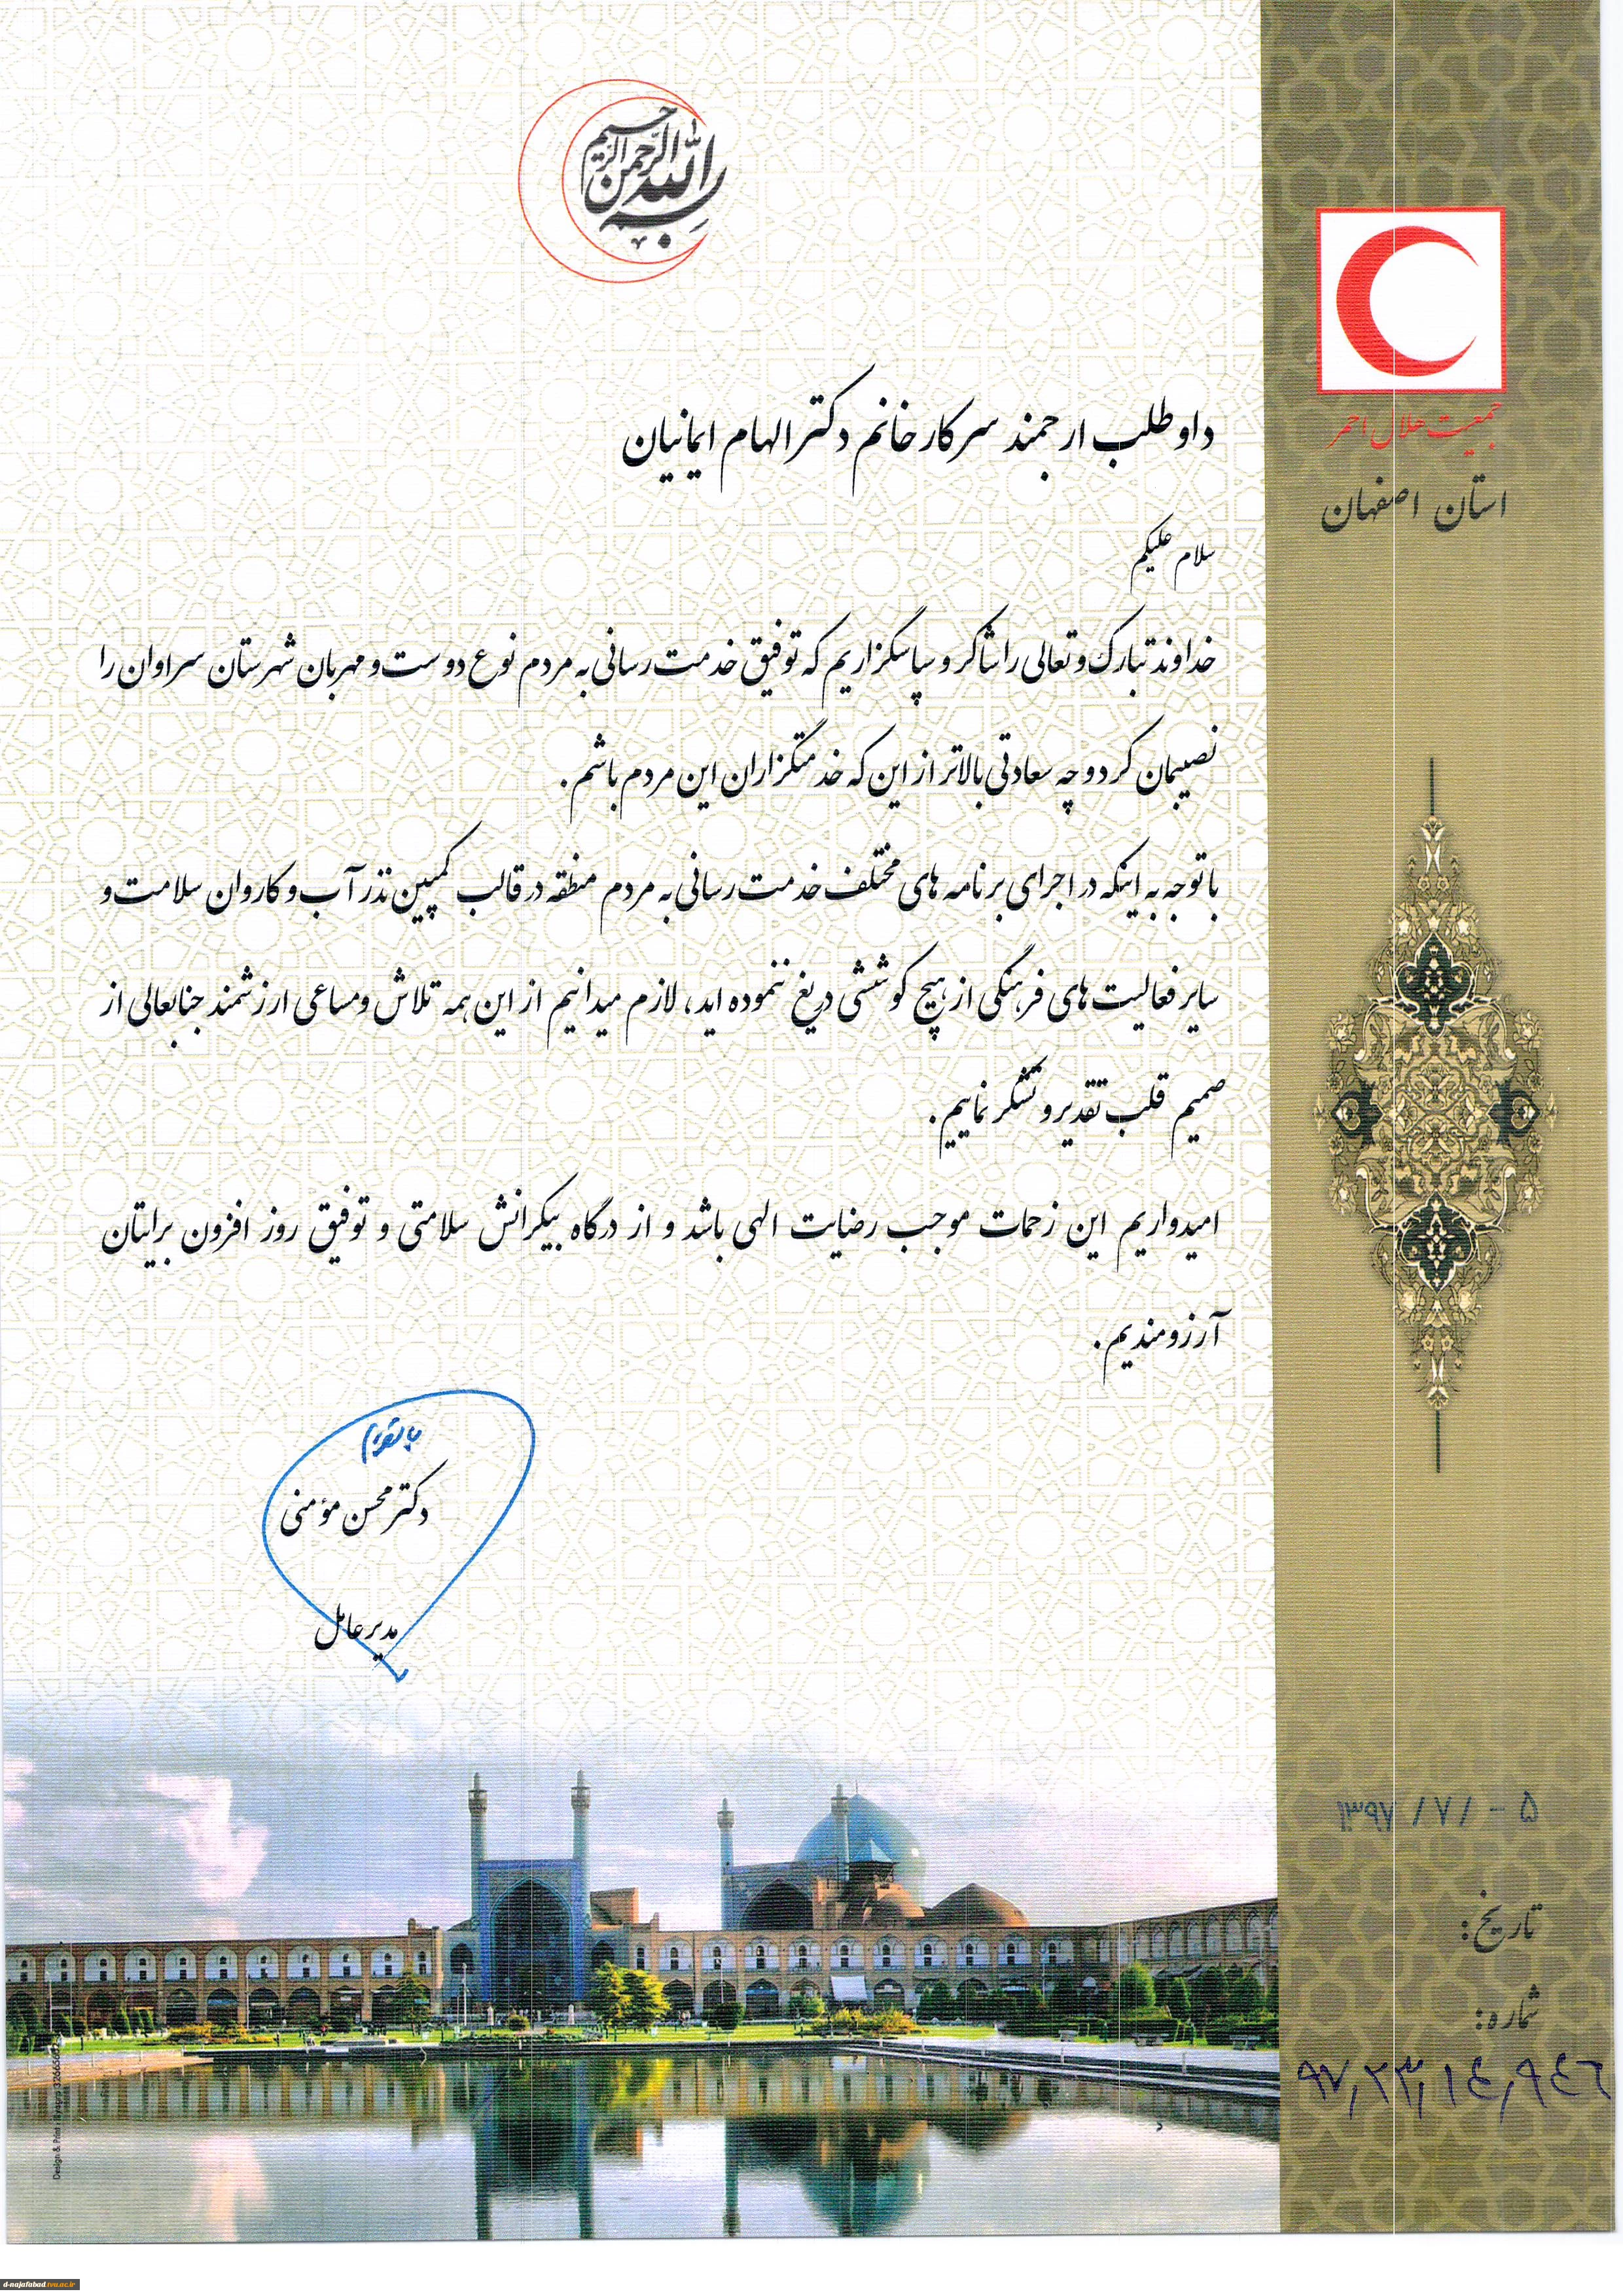 بسم الله الرحمن الرحیم
جمعیت هلال احمر
استان اصفهان
داوطلب ارجمند سرکار خانم دکتر الهام ایمانیان
سلام علیکم
خداوند تبارک و تعالی را شاکر و سپاسگزاریم که توفیق خدمت رسانی به مردم نوع دوست و مهربان شهرستان سراوان را
نصیبمان کرد و چه سعادتی بالاتر از این که خدمتگزاران این مردم باشم.
با توجه به اینکه در اجرای برنامه های مختلف خدمت رسانی به مردم منطقه در قالب کمپین نذر آب و کاروان سلامت و
سایر فعالیت های فرهنگی از هیچ کوششی دریغ ننموده اید، لازم میدانیم از این همه تلاش و مساعی ارزشمند جنابعالی از
صمیم قلب تقدیر و تشکر نماییم.
امیدواریم این زحمات موجب رضایت الهی باشد و از درگاه بیکرانش سلامتی و توفیق روز افزون برایتان
آرزومندیم.
دکتر محسن مؤمنی
مدیرعامل
۱۳۹۷ / ۷ / - ۵
تاریخ:
شماره:
۹۷,۲۳,۱٤,۹٤٦
d-najafabad.tvu.ac.ir